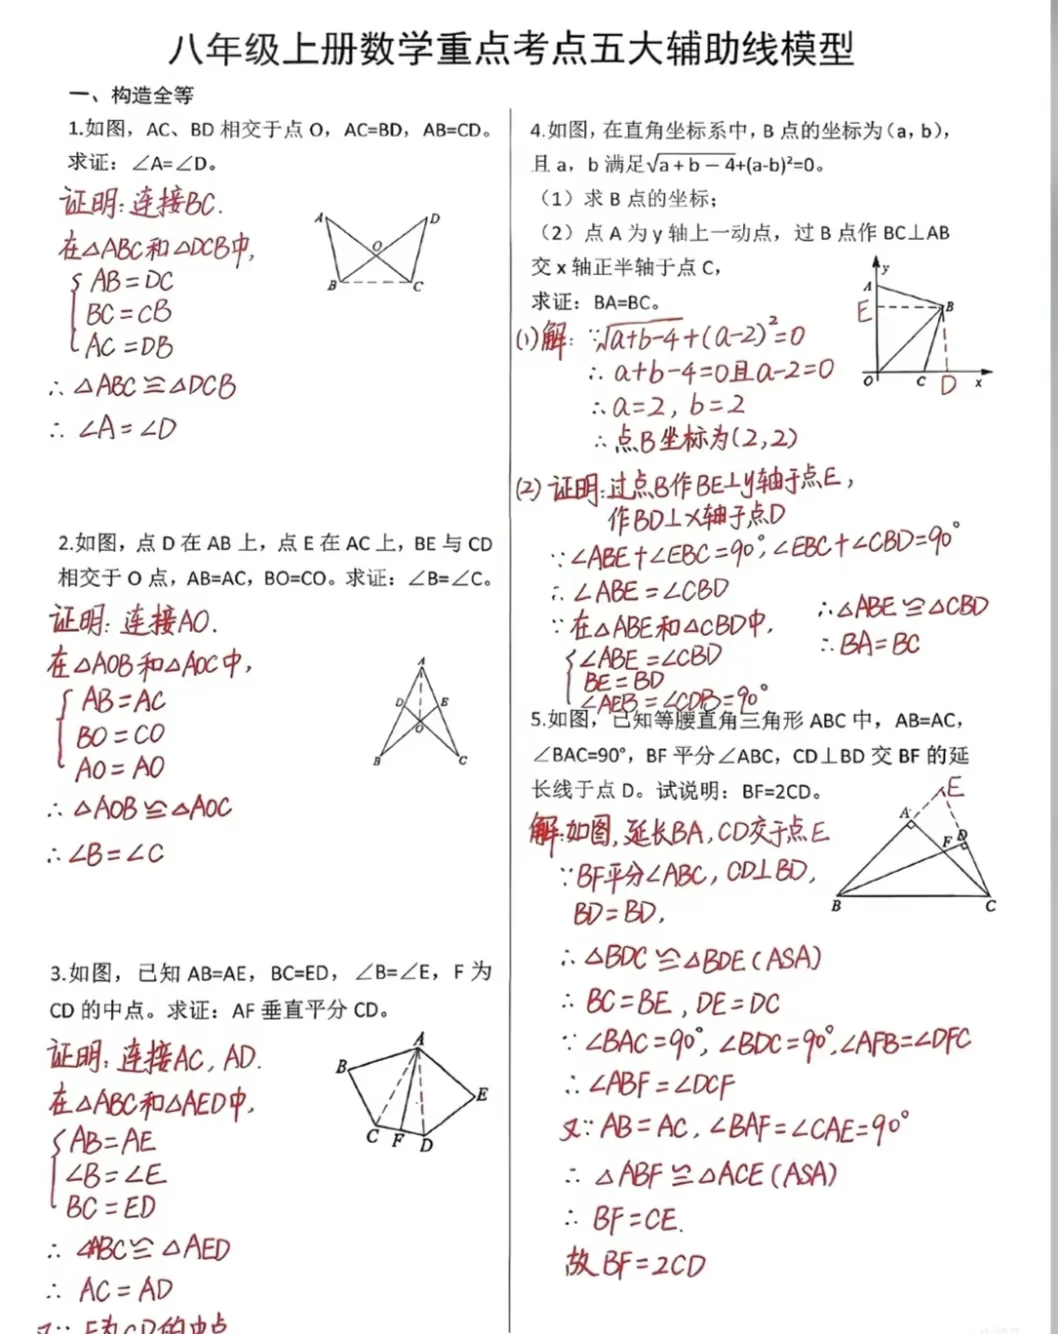 八年级上册数学重点考点五大辅助线模型
一、构造全等
1.如图，AC、BD 相交于点 O，AC=BD，AB=CD。
求证：∠A=∠D。
证明：连接BC.
在△ABC和△DCB中,
AB=DC
BC=CB
AC=DB
∴ △ABC≌△DCB
∴ ∠A=∠D
A
D
O
B
C
2.如图，点 D 在 AB 上，点 E 在 AC 上，BE 与 CD
相交于 O 点，AB=AC，BO=CO。求证：∠B=∠C。
证明：连接AO.
在△AOB和△AOC中,
AB=AC
BO=CO
AO=AO
∴ △AOB≌△AOC
∴ ∠B=∠C
A
D
E
O
B
C
3.如图，已知 AB=AE，BC=ED，∠B=∠E，F 为
CD 的中点。求证：AF 垂直平分 CD。
证明：连接AC, AD.
在△ABC和△AED中,
AB=AE
∠B=∠E
BC=ED
∴ △ABC≌△AED
∴ AC=AD
又∵ F为CD的中点
A
B
E
C
F
D
4.如图，在直角坐标系中，B 点的坐标为（a，b），
且 a，b 满足√a+b−4+(a-b)²=0。
（1）求 B 点的坐标；
（2）点 A 为 y 轴上一动点，过 B 点作 BC⊥AB
交 x 轴正半轴于点 C，
求证：BA=BC。
(1)解：∵√a+b-4+(a-2)²=0
∴ a+b-4=0且a-2=0
∴a=2, b=2
∴点B坐标为(2,2)
y
A
E
B
O
C
D
x
(2) 证明:过点B作BE⊥y轴于点E,
作BD⊥x轴于点D
∵∠ABE+∠EBC=90°,∠EBC+∠CBD=90°
∴∠ABE=∠CBD
∵在△ABE和△CBD中,
∠ABE=∠CBD
BE=BD
∠AEB=∠CDB=90°
∴△ABE≌△CBD
∴BA=BC
5.如图，已知等腰直角三角形 ABC 中，AB=AC，
∠BAC=90°，BF 平分∠ABC，CD⊥BD 交 BF 的延
长线于点 D。试说明：BF=2CD。
解:如图,延长BA,CD交于点E
∵BF平分∠ABC, CD⊥BD,
BD=BD,
∴ △BDC≌△BDE(ASA)
∴ BC=BE, DE=DC
∵ ∠BAC=90°, ∠BDC=90°,∠AFB=∠DFC
∴ ∠ABF=∠DCF
又∵ AB=AC, ∠BAF=∠CAE=90°
∴ △ABF≌△ACE(ASA)
∴ BF=CE.
故 BF=2CD
E
A
F
D
B
C